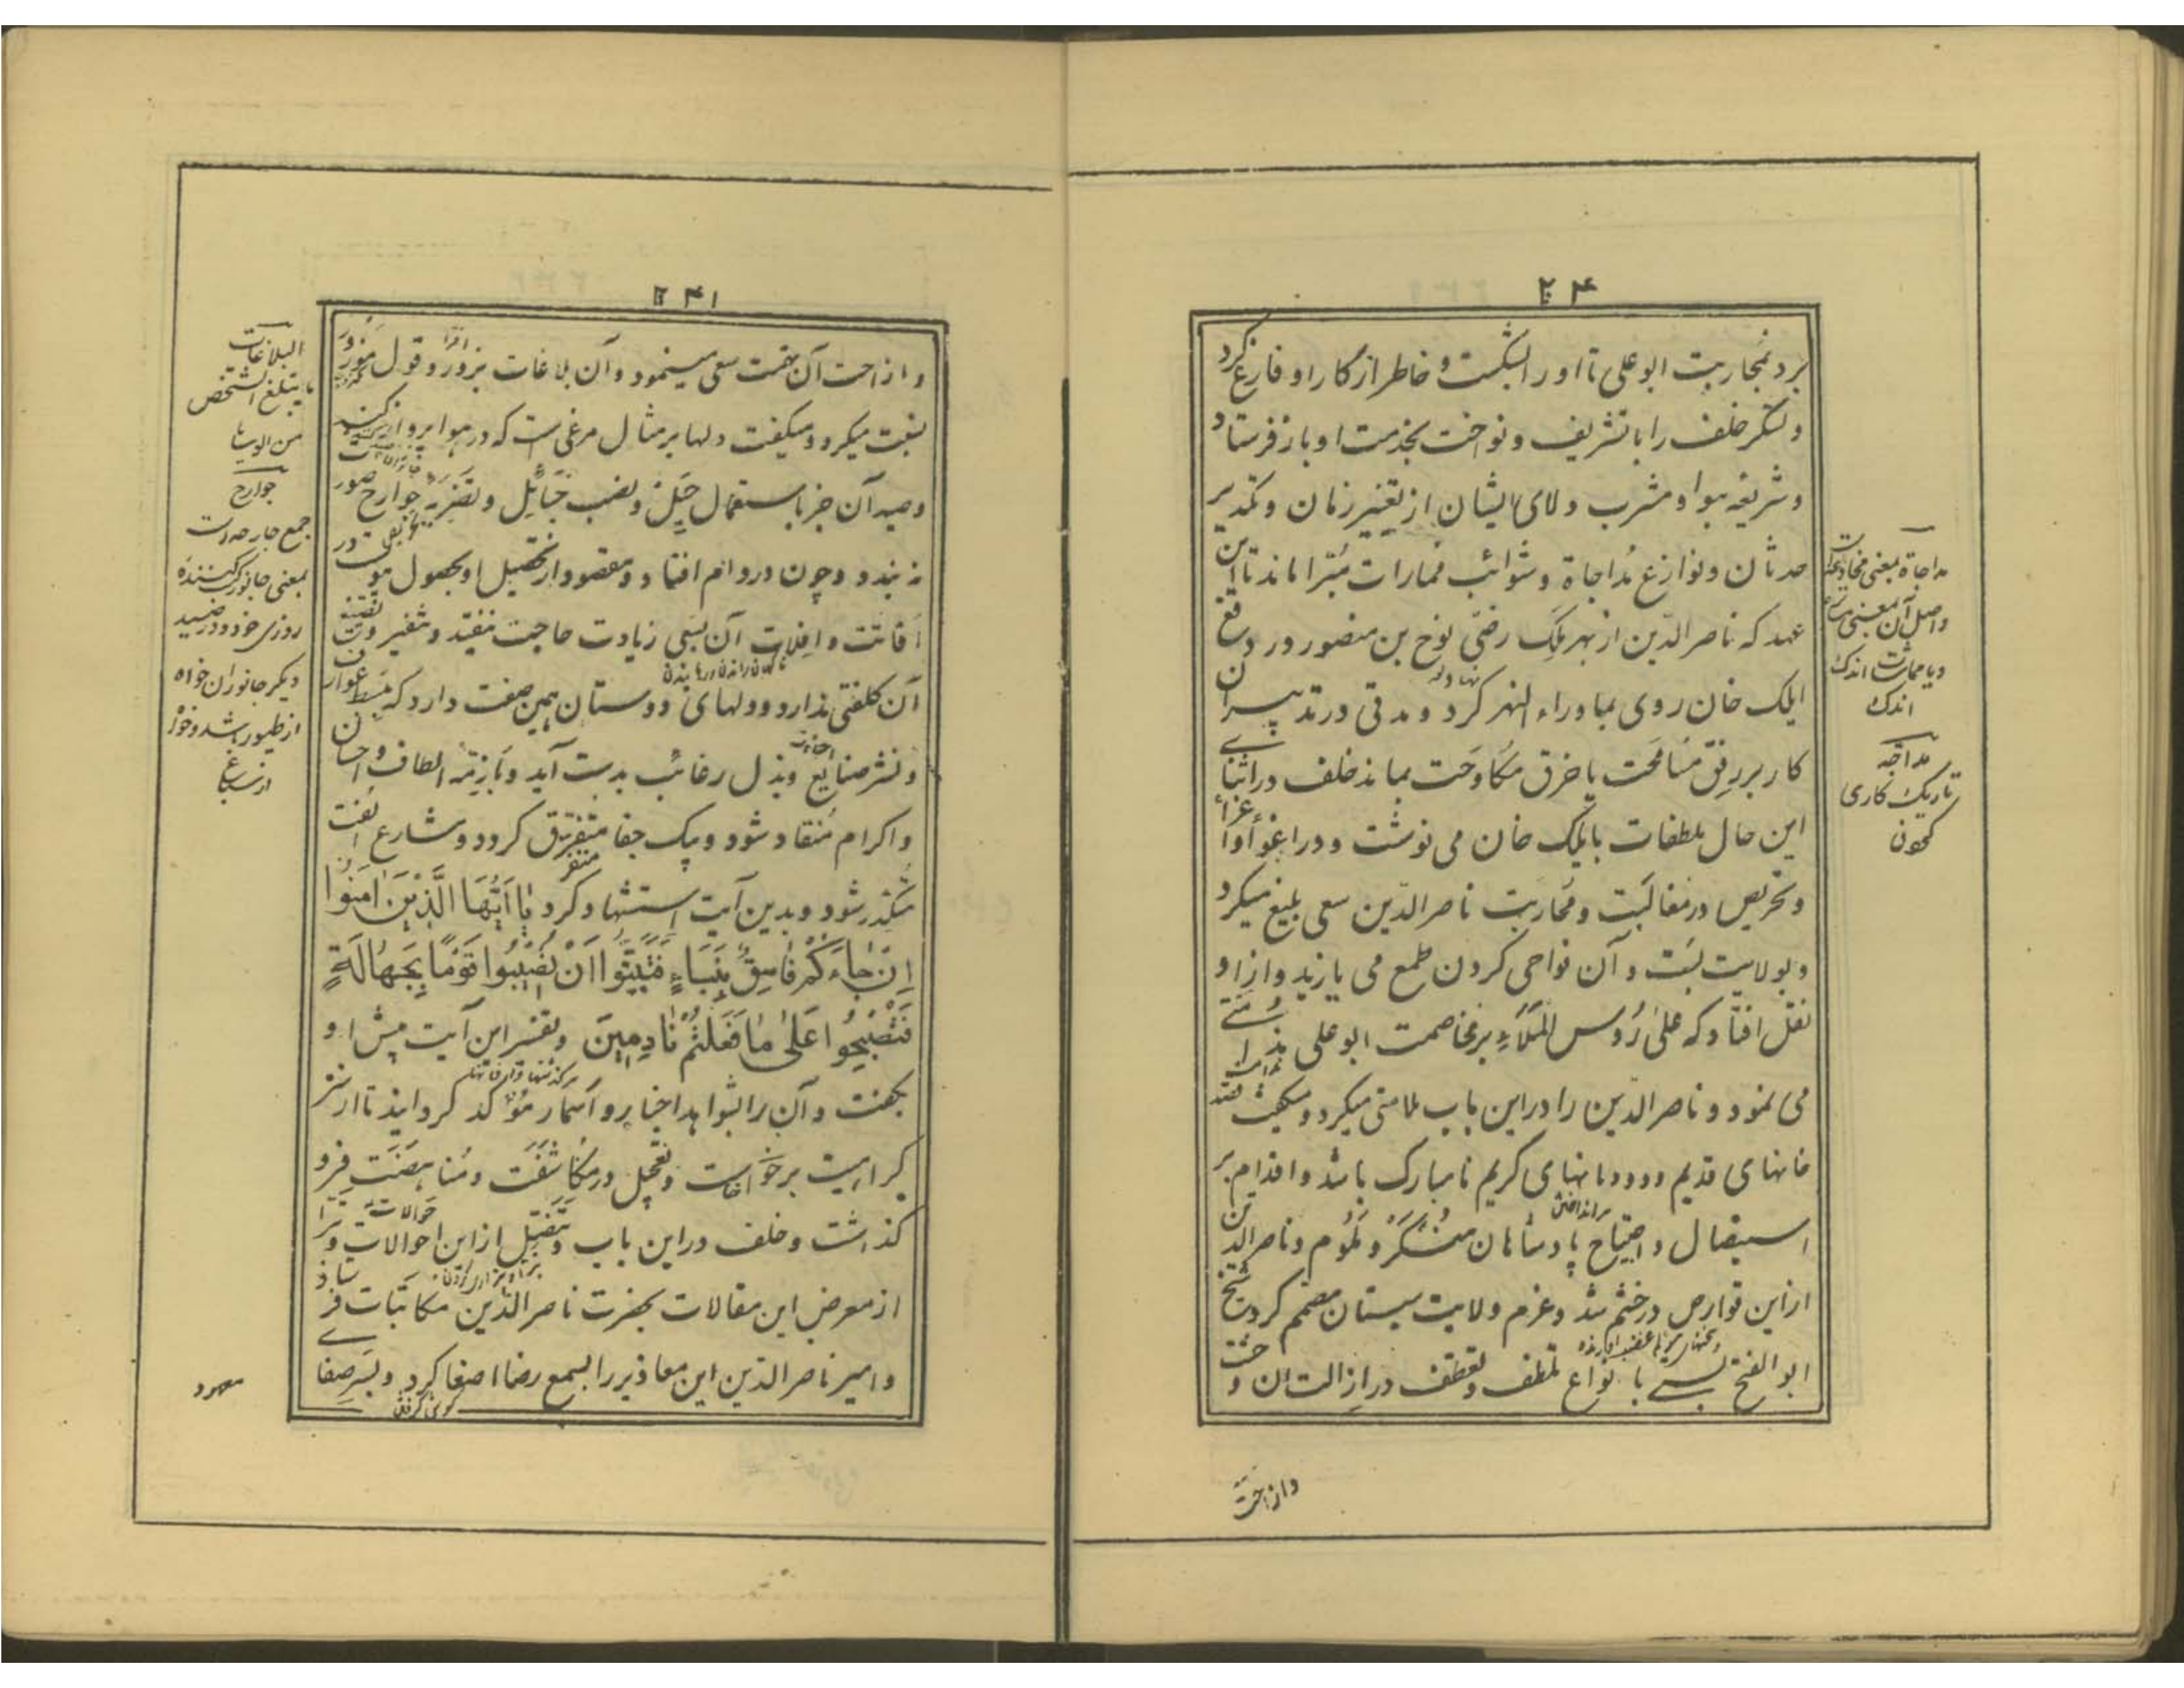 ۲۴۰
برد بمحاربت ابوعلی تا او را بشکست و خاطر از کار او فارغ کرد
و لشکر خلف را با تشریف و نواخت بخدمت او باز فرستاد
و شریعهٔ هوا و مشرب ولای ایشان از تغییر زمان و تکدیر
حدثان و نوازغ مداجاة و شوائب ممارات مبرا ماند تا این
عهد که ناصر الدین از بهر ملک رضی نوح بن منصور در دفع
ایلک خان روی بماوراء النهر کرد و مدتی در تدبیر آن
کار بر رفق مسامحت یا خرق مکاوحت بماند خلف در اثنای
این حال ملطفات بایلک خان می نوشت و در اغوا و اغراء
و تحریص در مغالبت و محاربت ناصر الدین سعی بلیغ میکرد
و بولایت بست و آن نواحی کردن طمع می یازید و از او
نقل افتاد که علی رؤس الملاء بر مخاصمت ابوعلی ندامتی
می نمود و ناصر الدین را در این باب ملامتی میکرد و میگفت قصد
خانهای قدیم و دودمانهای کریم نامبارک باشد و اقدام بر
استیصال و اجتیاح پادشاهان منکر و ملوم و ناصر الدین
از این قوارص در خشم شد و عزم ولایت سیستان مصمم کرد شیخ
ابو الفتح بستی با نواع تلطف و تعطف در ازالت ان وحشت
مداجاة بمعنی مخادعت
واصل آن بمعنی
و یا مماشات اندک
اندک
مداجه
تاریک کاری
کردن
وازاحت
۲۴۱
و ازاحت آن تهمت سعی مینمود و آن بلاغات بزور و قول مزور
نسبت میکرد و میگفت دلها بر مثال مرغی است که در هوا پرواز کند
و صید آن جز باستعمال حیل و نصب حبائل و تضریه جوارح صورت
نه بندد و چون در دام افتاد و مقصود از تحصیل او بحصول موصول
افاتت و افلات آن بسعی زیادت حاجت نیفتد و تنفیر و تفتیت
آن کلفتی ندارد و دلهای دوستان همین صفت دارد که ببسط عوارف
و نشر صنایع و بذل رغائب بدست آید و بازمّه الطاف و احسان
و اکرام منقاد شود و بیک جفا متفرق گردد و مشارع الفت
متکدر شود و بدین آیت استشهاد کرد یا أیها الذین آمنوا
إن جاءکم فاسق بنباء فتبینوا أن تصیبوا قوما بجهالة
فتصبحوا علی ما فعلتم نادمین و تفسیر این آیت پیش او
بگفت و آن را بشواهد اخبار و آسمار مؤکد گردانید تا از سر
کراهیت برخواست و تعجیل در مکاشفت و مناهضت فرو
گذاشت و خلف در این باب و تنصل از این احوالات و تبرا
از معرض این مقالات بحضرت ناصر الدین مکاتبات فرستاد
و امیر ناصر الدین این معاذیر را بسمع رضا اصغا کرد و بسر صفا
البلاغات
ما یتبلغ الشخص
من الوسایا
جوارح
جمع جارحه است
بمعنی جانور کسب کننده
روزی خود و در صید
دیگر جانوران خواه
از طیور باشد و خواه
از سباع
گوش گرفتن